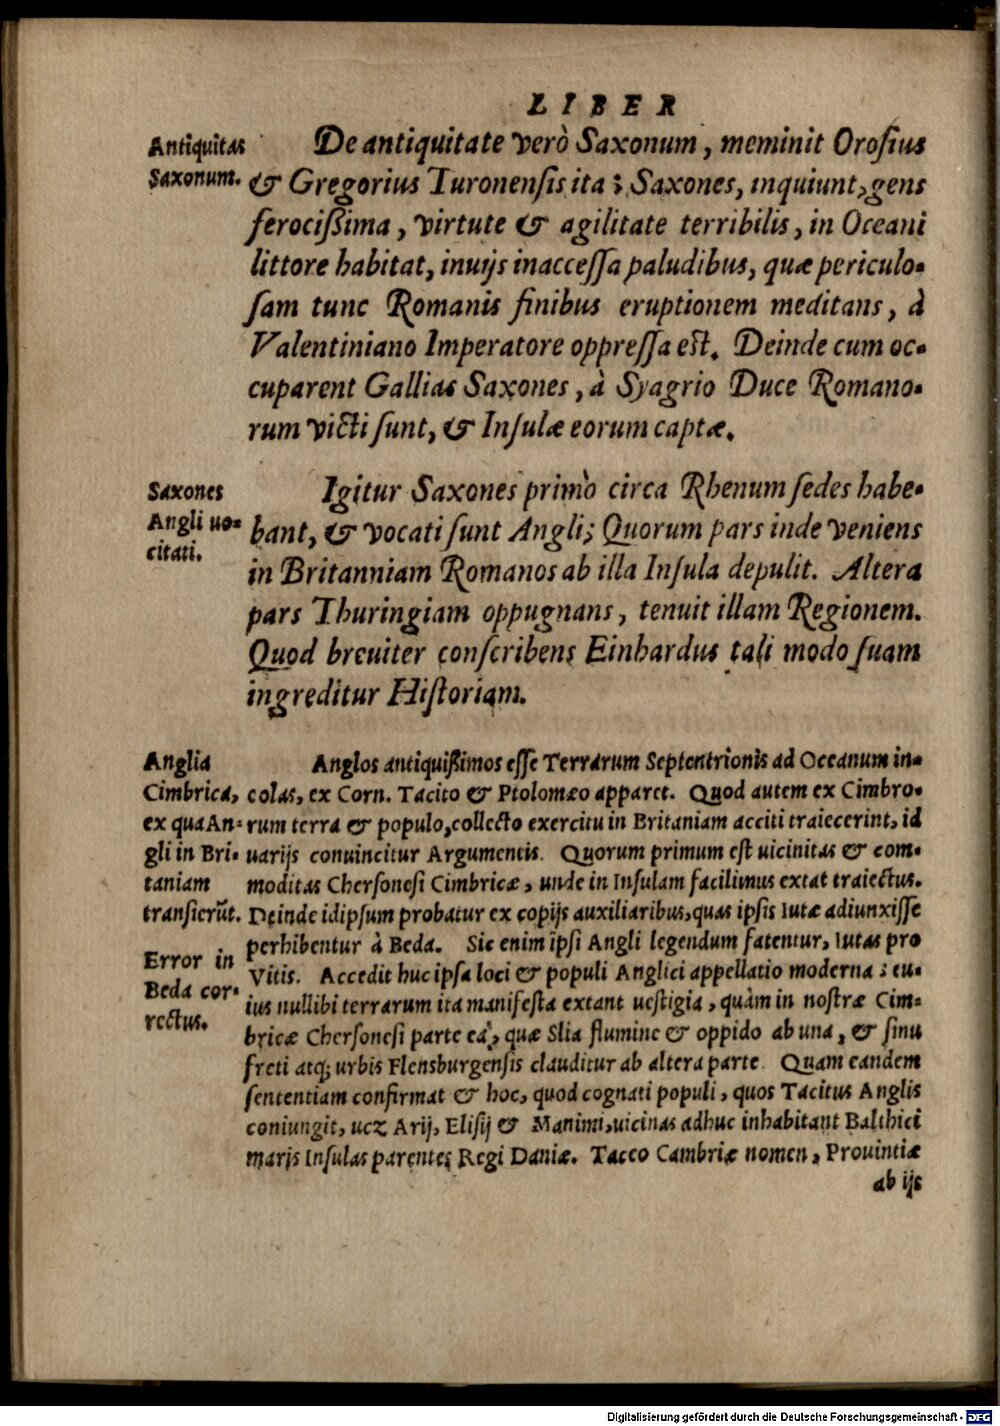 LIBER
Antiquitas
Saxonum.
De antiquitate verò Saxonum, meminit Orosius
& Gregorius Turonensis ita: Saxones, inquiunt, gens
ferocißima, virtute & agilitate terribilis, in Oceani
littore habitat, inuijs inaccessa paludibus, quæ periculo-
sam tunc Romanis finibus eruptionem meditans, à
Valentiniano Imperatore oppressa est. Deinde cum oc-
cuparent Gallias Saxones, à Syagrio Duce Romano-
rum victi sunt, & Insulæ eorum captæ.
Saxones
Angli uo-
citati.
Igitur Saxones primò circa Rhenum sedes habe-
bant, & vocati sunt Angli; Quorum pars inde veniens
in Britanniam Romanos ab illa Insula depulit. Altera
pars Thuringiam oppugnans, tenuit illam Regionem.
Quod breuiter conscribens Einhardus tali modo suam
ingreditur Historiam.
Anglia
Cimbrica,
ex qua An-
gli in Bri-
taniam
transierũt.
Error in
Beda cor-
rectus.
Anglos antiquißimos esse Terrarum Septentrionis ad Oceanum in-
colas, ex Corn. Tacito & Ptolomæo apparet. Quod autem ex Cimbro-
rum terra & populo, collecto exercitu in Britaniam acciti traiecerint, id
uarijs conuincitur Argumentis. Quorum primum est uicinitas & com-
moditas Chersonesi Cimbricæ, unde in Insulam facilimus extat traiectus.
Deinde idipsum probatur ex copijs auxiliaribus, quas ipsis Iutæ adiunxisse
perhibentur à Beda. Sic enim ipsi Angli legendum fatentur, Iutas pro
Vitis. Accedit huc ipsa loci & populi Anglici appellatio moderna: cu-
ius nullibi terrarum ita manifesta extant uestigia, quàm in nostræ Cim-
bricæ Chersonesi parte ea, quæ Slia flumine & oppido ab una, & sinu
freti atq; urbis Flensburgensis clauditur ab altera parte. Quam eandem
sententiam confirmat & hoc, quod cognati populi, quos Tacitus Anglis
coniungit, ucz Arij, Elisij & Manimi, uicinas adhuc inhabitant Balthici
maris Insulas parentes Regi Daniæ. Taceo Cambriæ nomen, Prouintiæ
ab ijs
Digitalisierung gefördert durch die Deutsche Forschungsgemeinschaft - DFG